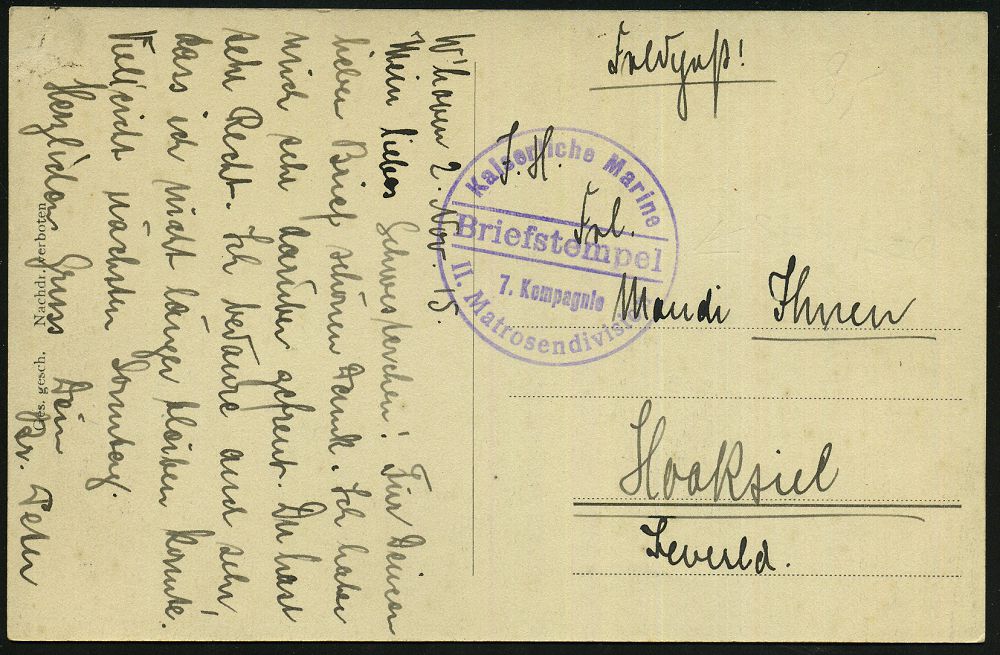 W'haven 2. Nov. 15.
Mein liebes Schwesterchen! Für Deinen
lieben Brief schönen Dank. Ich habe
mich sehr darüber gefreut. Du hast
sehr Recht. Ich bedaure auch sehr,
dass ich nicht länger bleiben konnte.
Vielleicht nächsten Sonntag.
Herzlichen Gruss Dein
Br. Peter
Ges. gesch. Nachdr. verboten
Feldpost!
J. H.
Frl.
Mandi Ihnen
Hooksiel
Jeverld.
Kaiserliche Marine
Briefstempel
7. Kompagnie
II. Matrosendivision